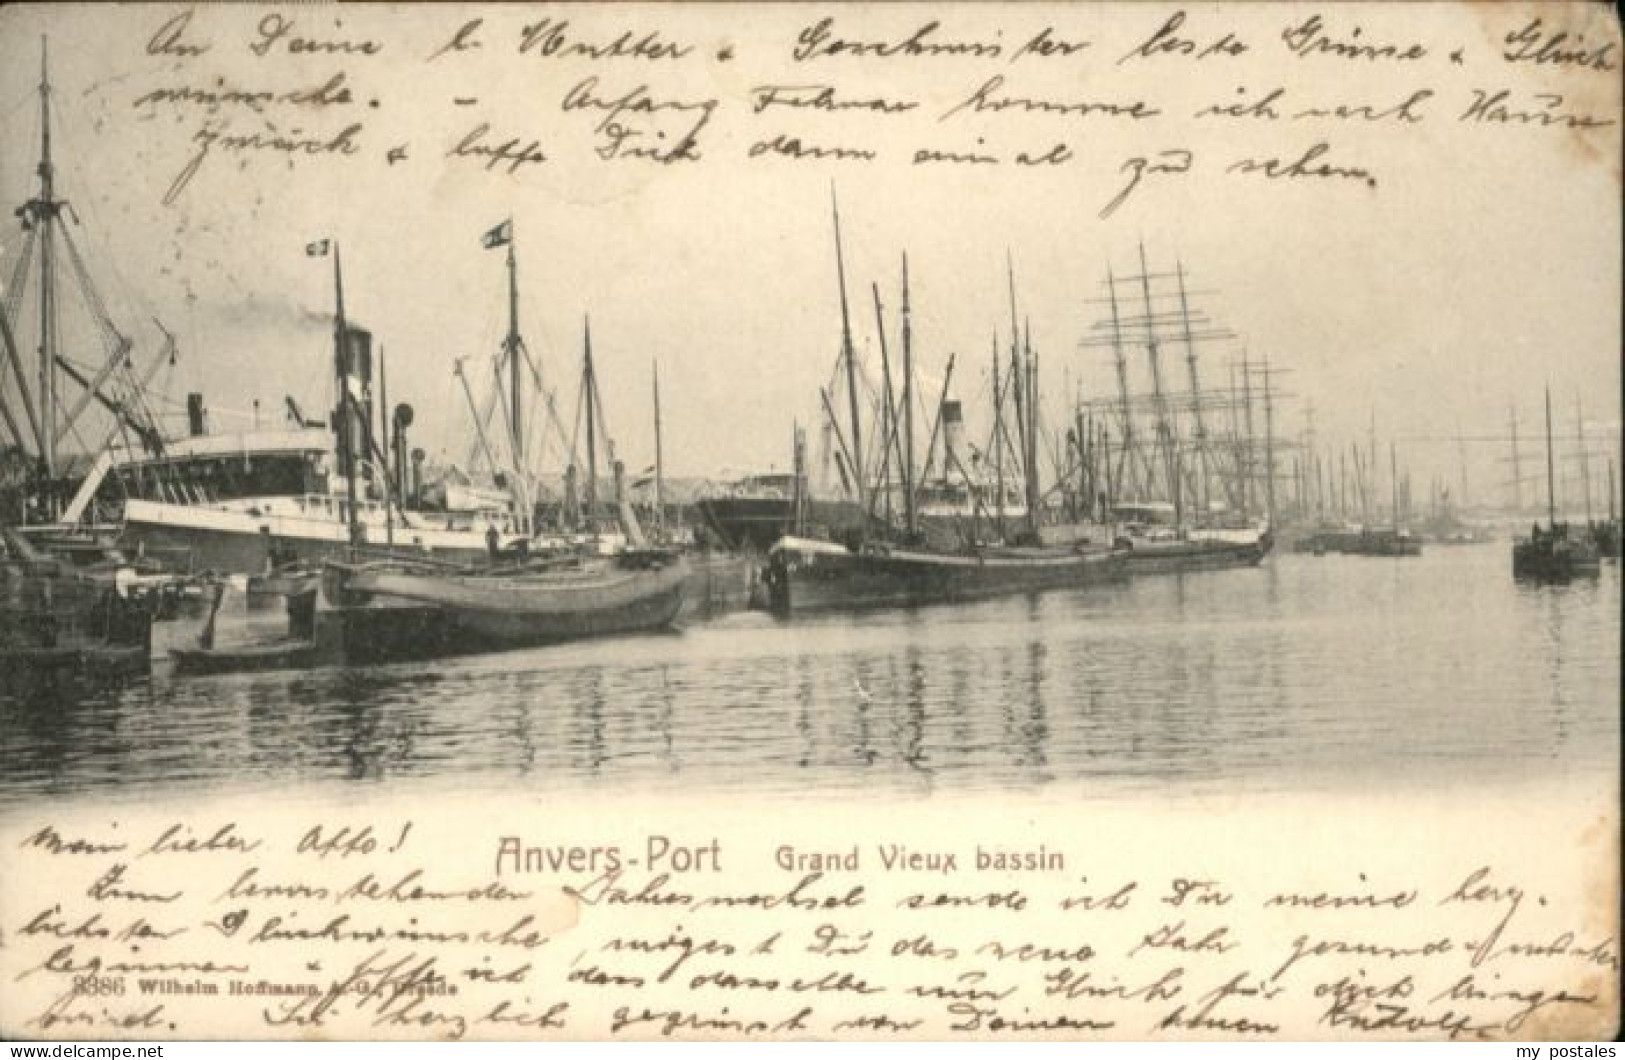 An Deine l. Mutter & Geschwister beste Grüsse & Glück
wünsche. - Anfang Februar komme ich nach Hause
zurück & hoffe Dich dann einmal zu sehen.
Mein lieber Otto!
Anvers-Port Grand Vieux bassin
Zum bevorstehenden Jahreswechsel sende ich Dir meine herz-
lichsten Glückwünsche, mögest Du das neue Jahr gesund & munter
beginnen & hoffe ich dass dasselbe nur Glück für dich bringen
3386 Wilhelm Hoffmann A.-G., Dresde
wird. Sei herzlich gegrüsst von Deinem treuen Rudolf